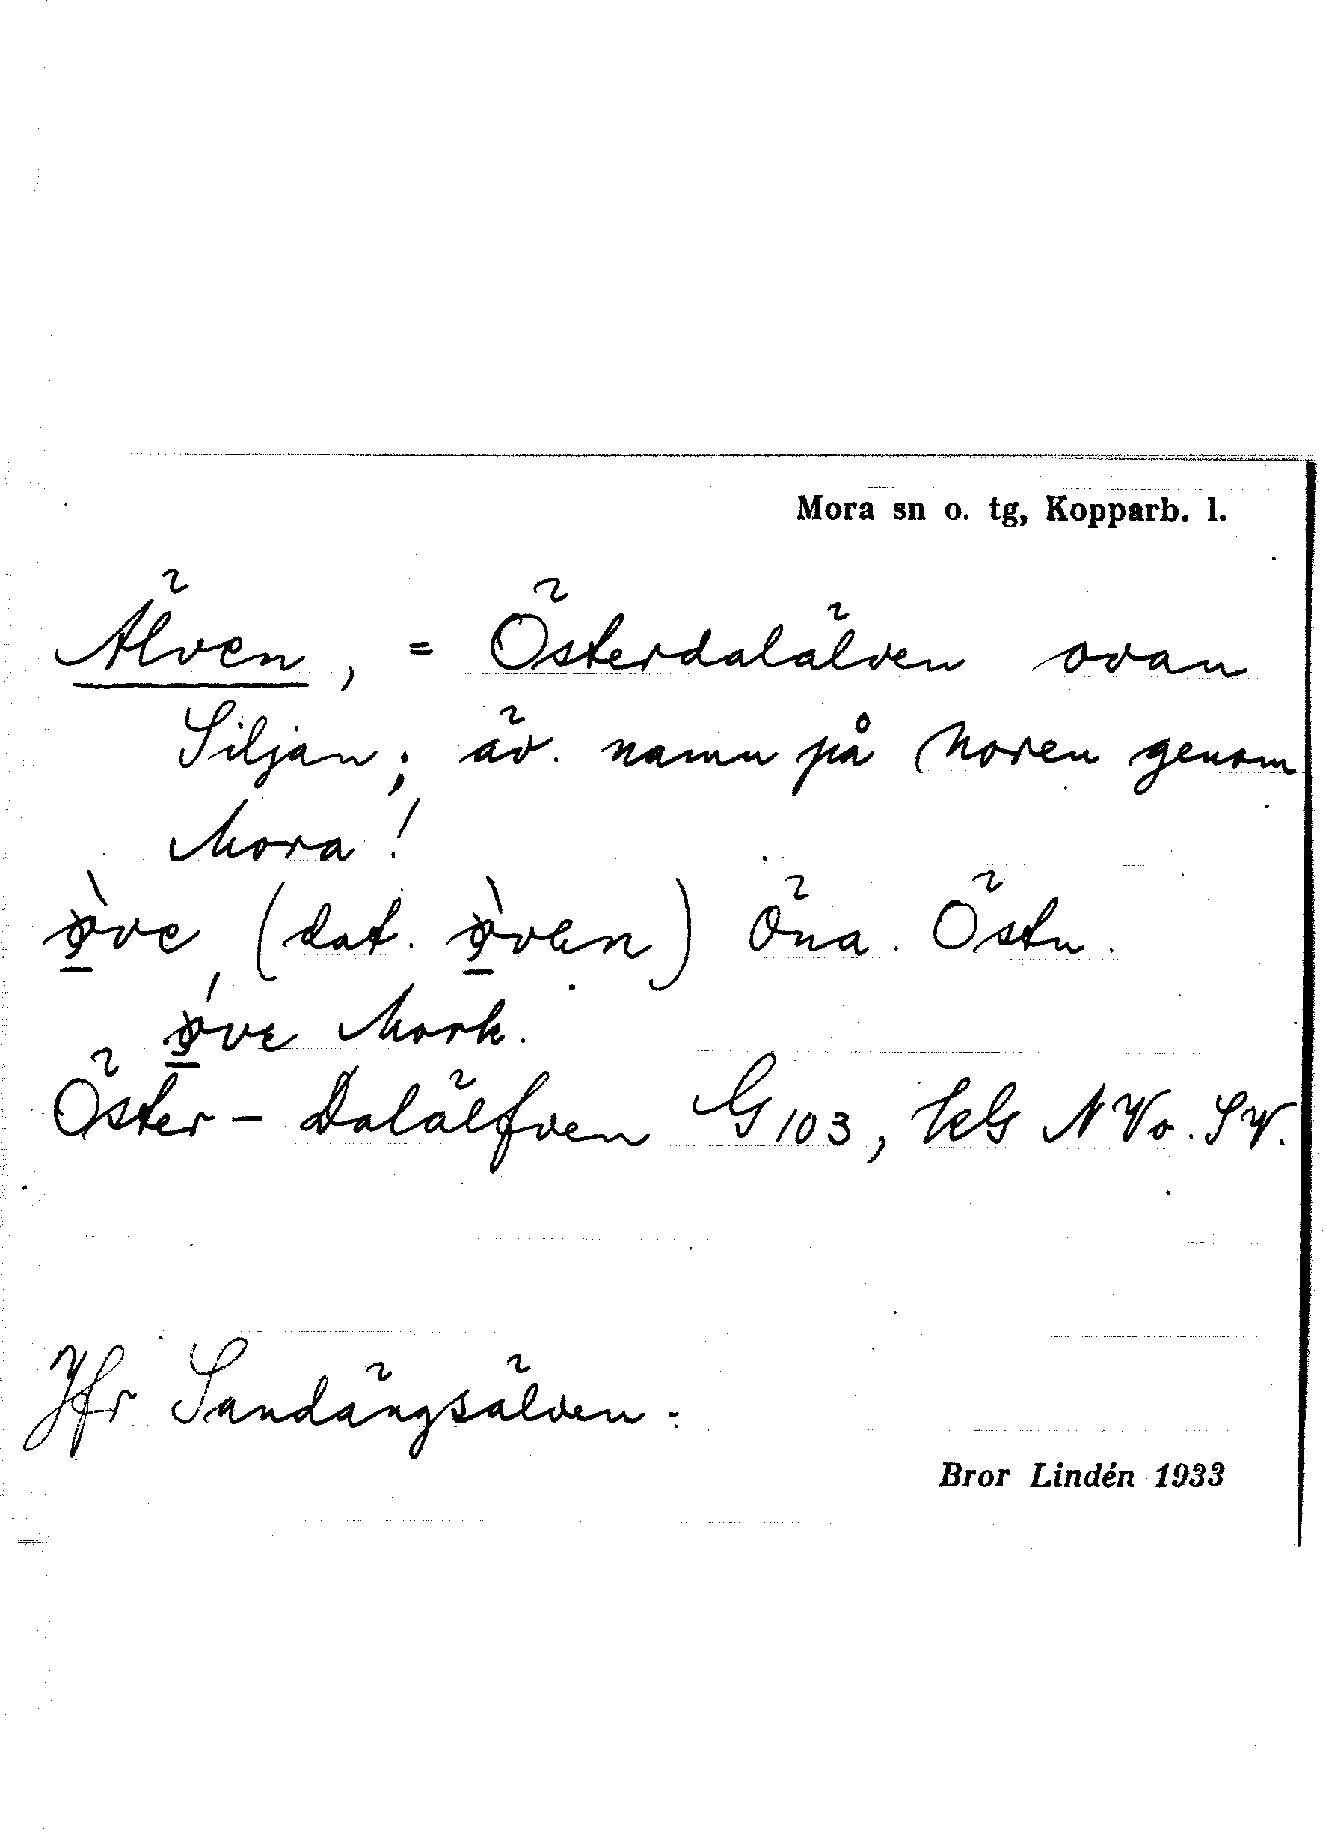 Mora sn o. tg, Kopparb. l.
Älven, = Österdalälven ovan
Siljan; äv. namn på Noren genom
Mora!
(dat. Öna. Östn.
Mork.
Öster-Dalälfven G 103, NVo. SV.
Jfr Sandängsälven.
Bror Lindén 1933